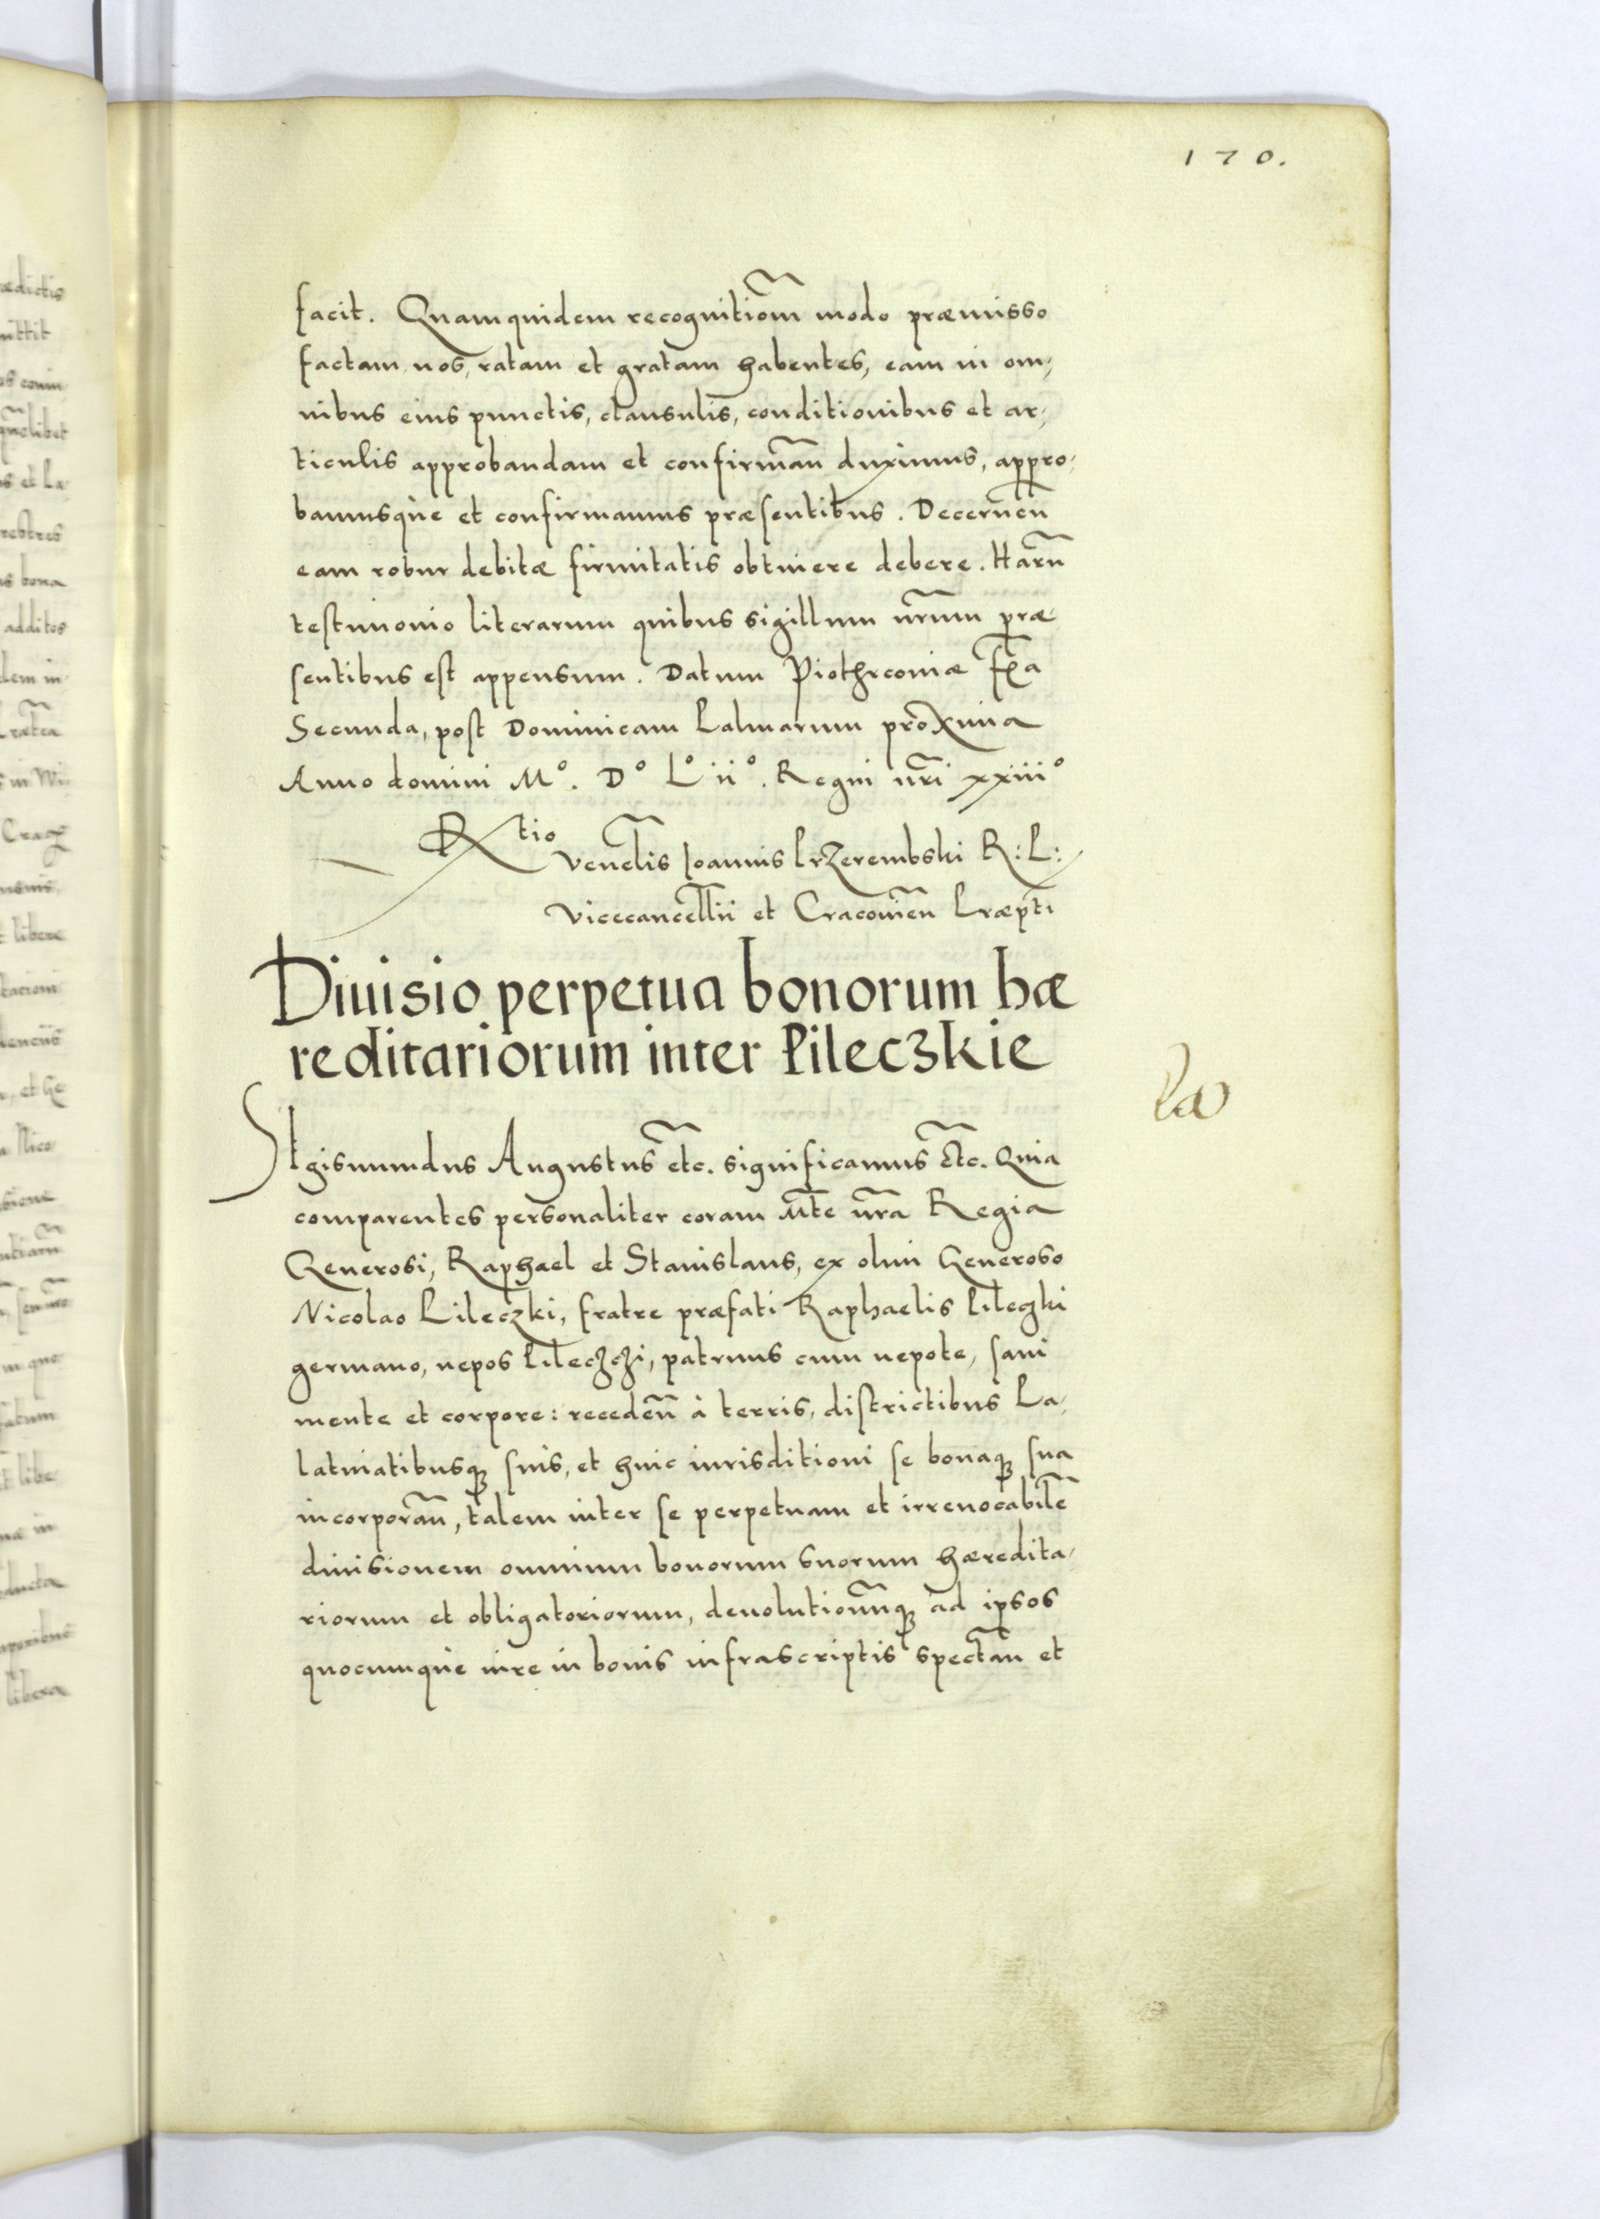 170.
facit. Quamquidem recognitiom̃ modo præmisso
factam nos, ratam et gratam habentes, eam in om,
nibus eius punctis, clausulis, conditionibus et ar,
ticulis approbandam et confirmañ duximus, appro,
bamusque et confirmamus præsentibus. Decerneñ
eam robur debitæ firmitatis obtinere debere. Harũ
testimonio literarum quibus sigillum nr̃um præ
sentibus est appensum. Datum Piothrconiæ fr̃ia
Secunda, post Dominicam Palmarum proxima
Anno domini M°. D° L° ii°. Regni nr̃i xxiii°
Rtio
Venelis̃ Ioannis Przerembski R: P:
Vicecancellii et Cracovieñ Præpti
Diuisio perpetua bonorum hæ
reditariorum inter Pileczkie
Sigismundus Augustus etc̃. significamus etc̃. Quia
comparentes personaliter coram Mte nr̃a Regia
Generosi, Raphael et Stanislaus, ex olim Generoso
Nicolao Pileczki, fratre præfati Raphaelis Pileczki
germano, nepos Pileczczi, patruus cum nepote, sani
mente et corpore: recedeñ à terris, districtibus Pa,
latinatibusq; suis, et huic iurisditioni se bonaq; sua
incorporañ, talem inter se perpetuam et irreuocabilẽ
diuisionem omnium bonorum suorum hæredita,
riorum et obligatoriorum, deuolutionũq; ad ipsos
quocumque iure in bonis infrascriptis spectañ et